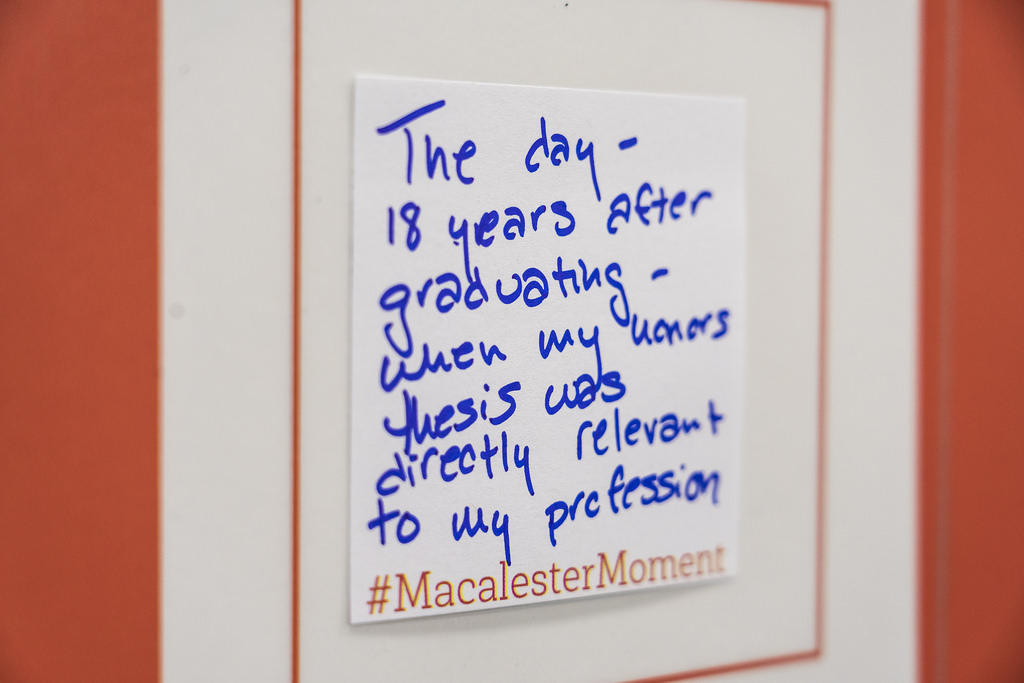 The day -
18 years after
graduating -
when my honors
thesis was
directly relevant
to my profession
#MacalesterMoment